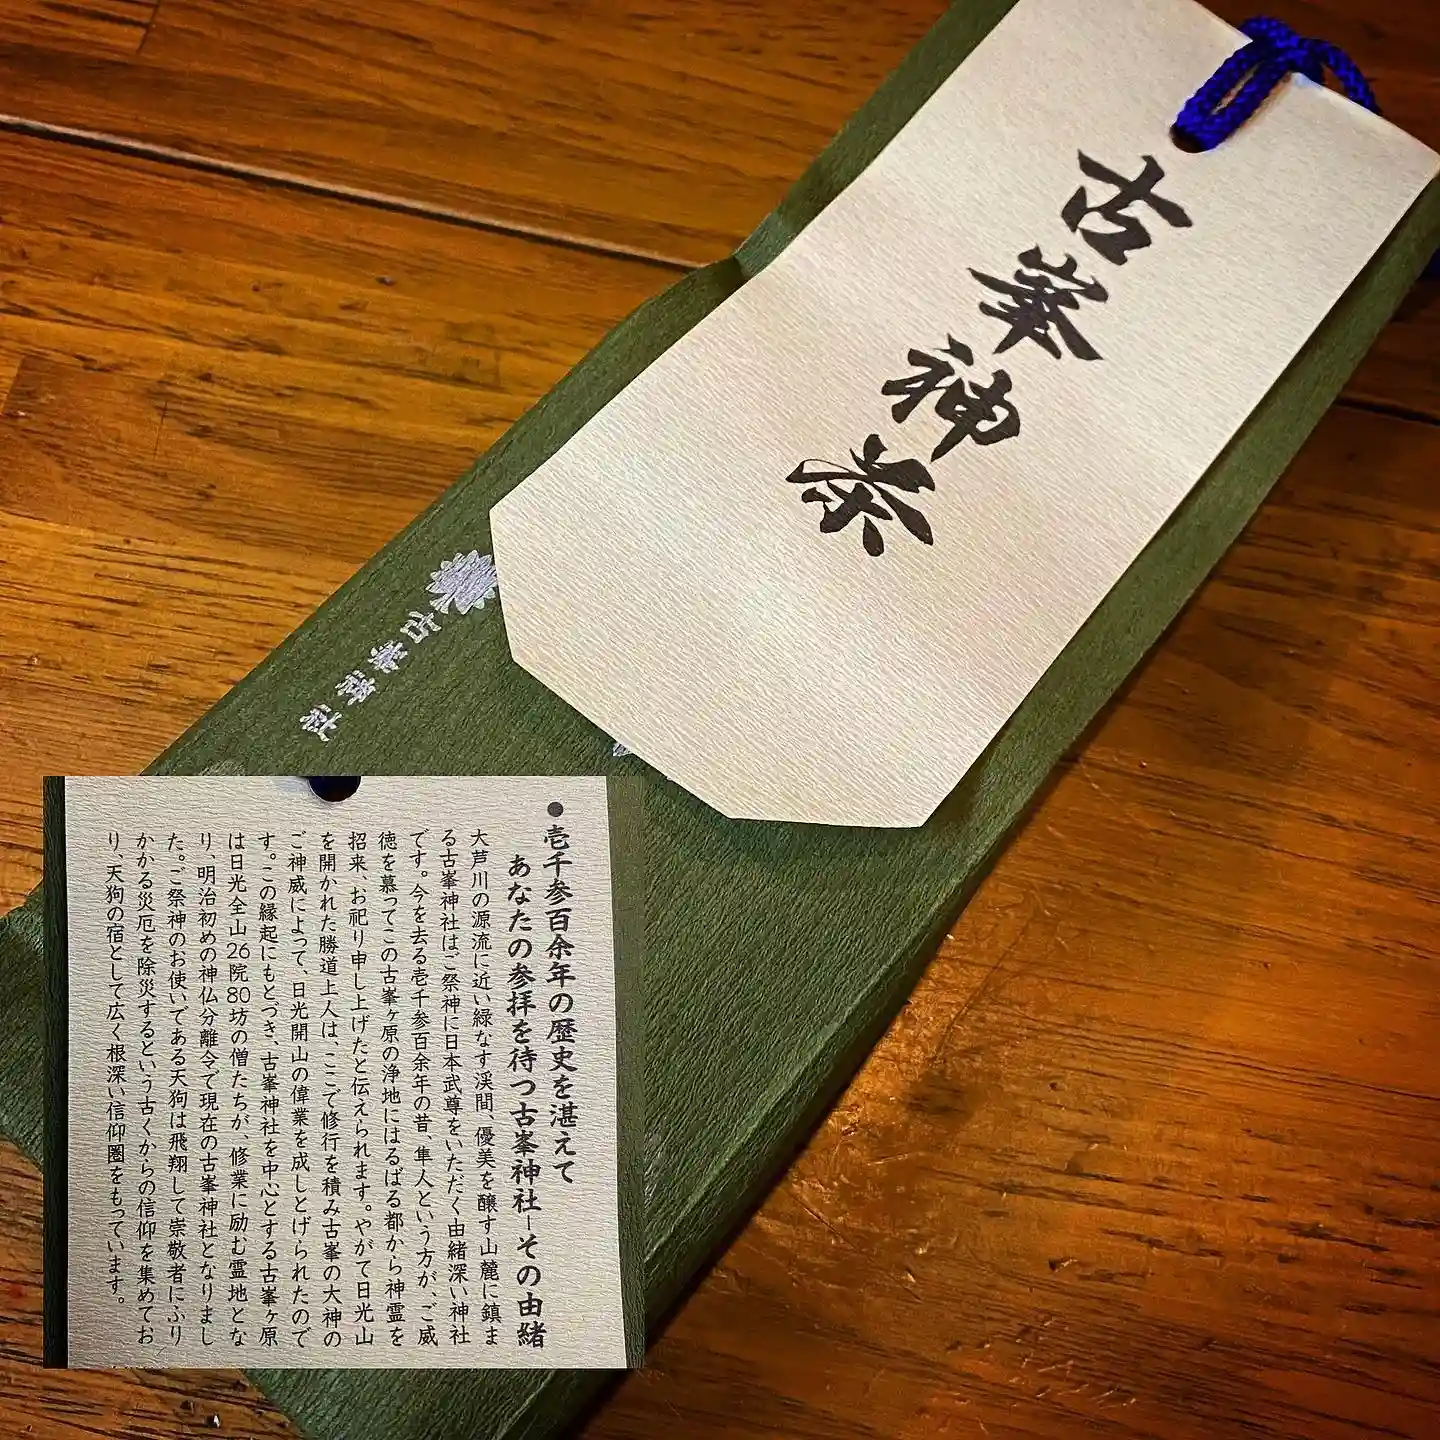 古峯神茶
古峯神社
●壱千参百余年の歴史を湛えて
あなたの参拝を待つ古峯神社―その由緒
大芦川の源流に近い緑なす渓間、優美を醸す山麓に鎮ま
る古峯神社はご祭神に日本武尊をいただく由緒深い神社
です。今を去る壱千参百余年の昔、隼人という方が、ご威
徳を慕ってこの古峯ヶ原の浄地にはるばる都から神霊を
招来、お祀り申し上げたと伝えられます。やがて日光山
を開かれた勝道上人は、ここで修行を積み古峯の大神の
ご神威によって、日光開山の偉業を成しとげられたので
す。この縁起にもとづき、古峯神社を中心とする古峯ヶ原
は日光全山26院80坊の僧たちが、修業に励む霊地とな
り、明治初めの神仏分離令で現在の古峯神社となりまし
た。ご祭神のお使いである天狗は飛翔して崇敬者にふり
かかる災厄を除災するという古くからの信仰を集めてお
り、天狗の宿として広く根深い信仰圏をもっています。